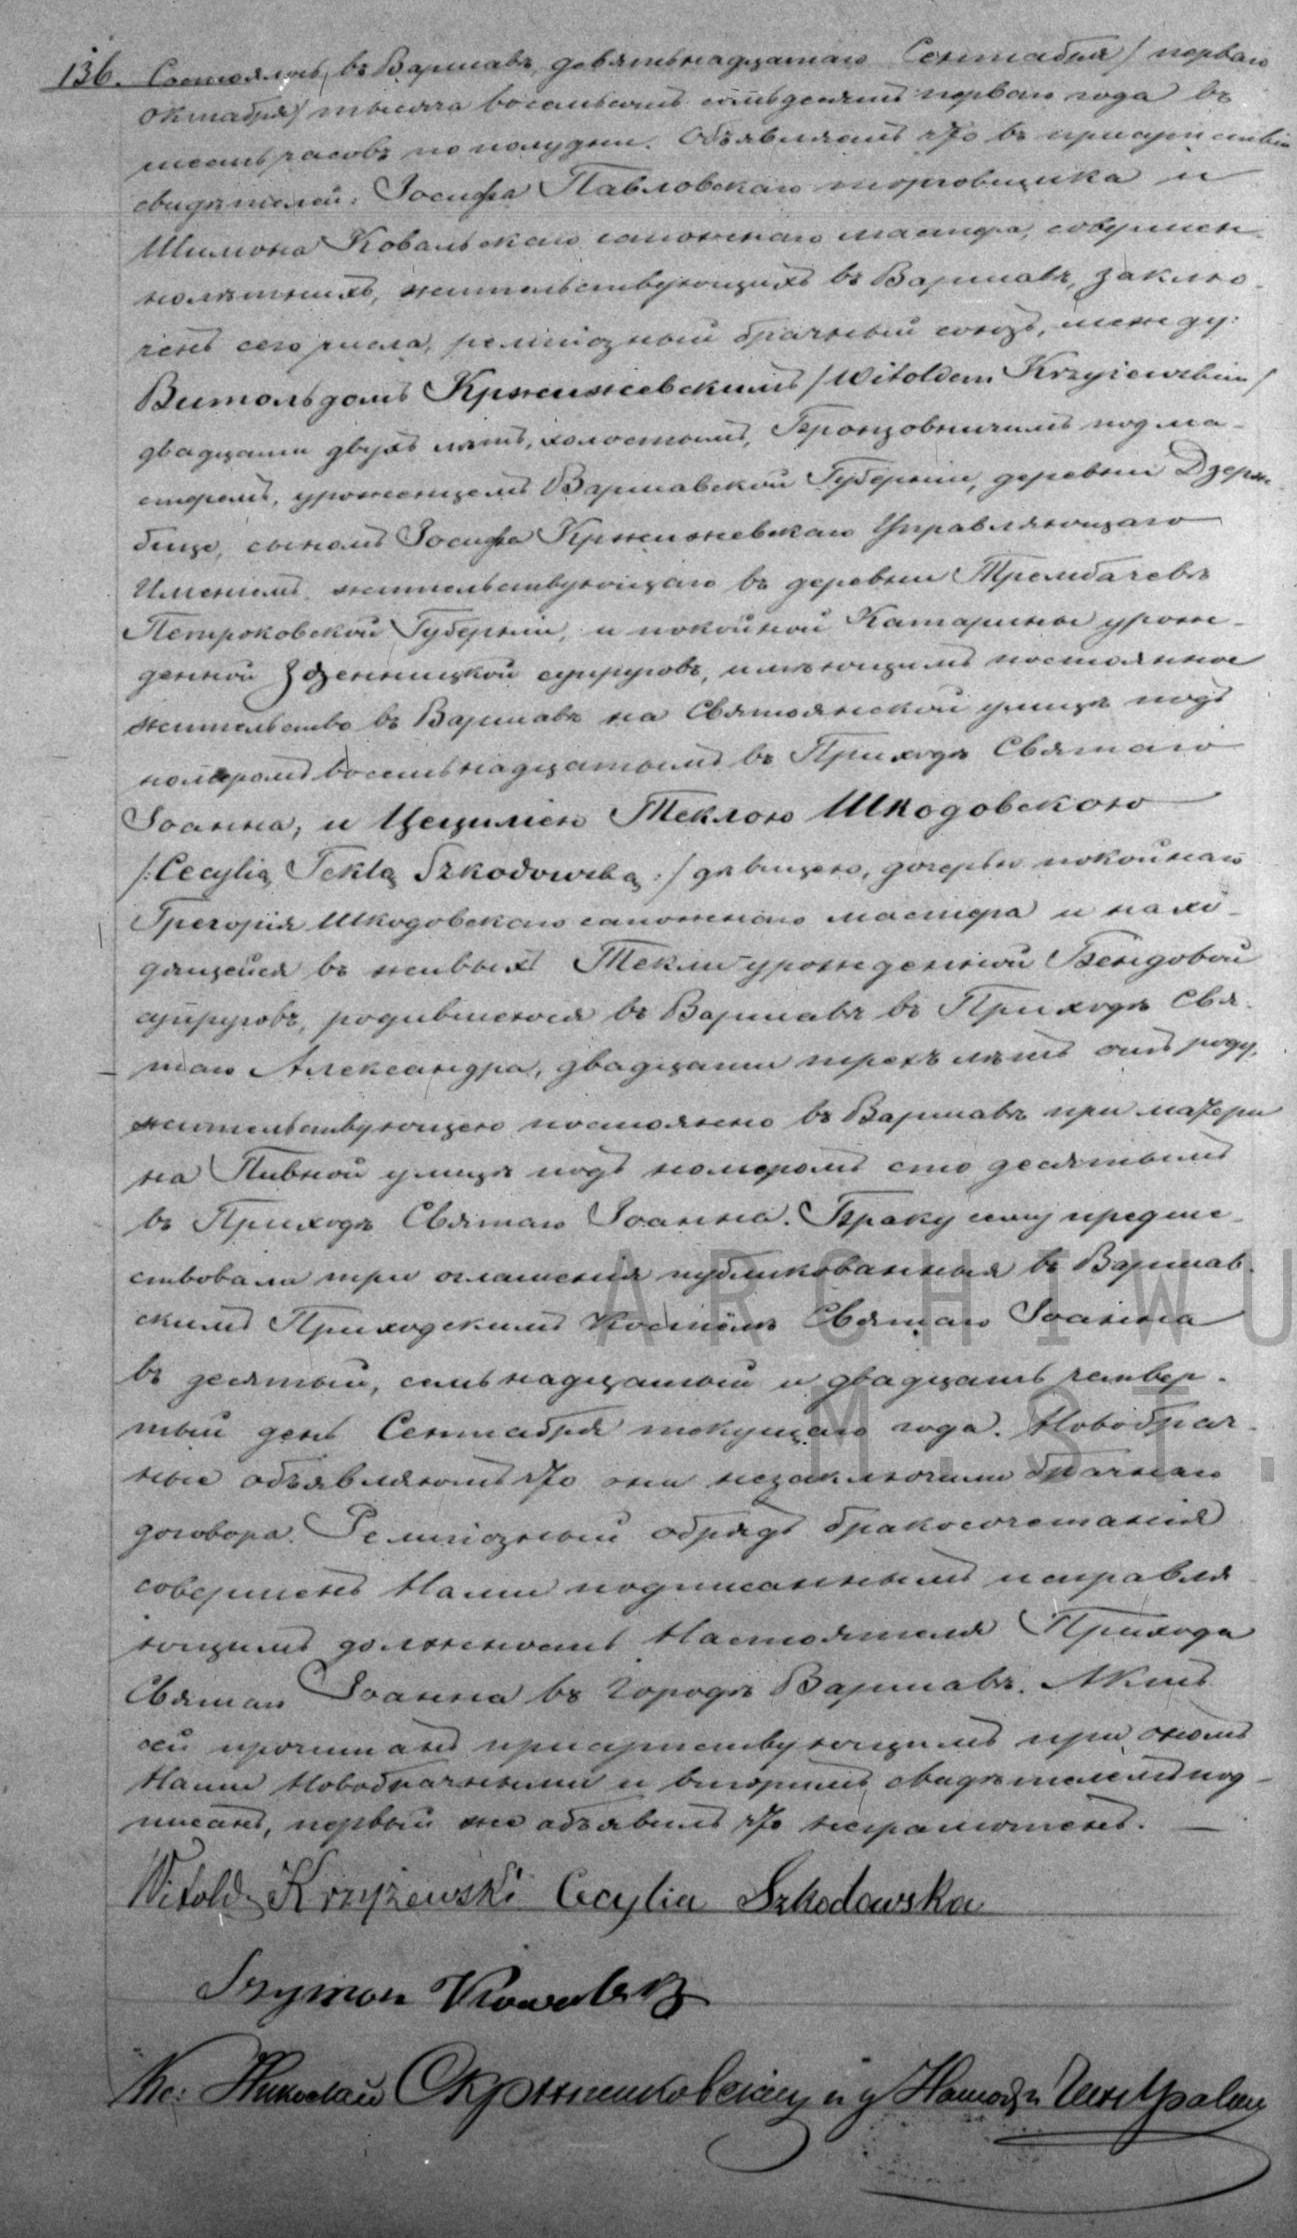 136. Состоялось въ Варшавѣ девятьнадцатаго Сентября / перваго
Октября / тысяча восемьсотъ семьдесятъ перваго года въ
шесть часовъ по полудни. Объявляемъ что въ присутствіи
свидѣтелей: Іосифа Павловскаго торговщика и
Шимона Ковальскаго сапожнаго мастера, совершен-
нолѣтнихъ, жительствующихъ въ Варшавѣ, заклю-
ченъ сего числа, религіозный брачный союзъ, между:
Витольдомъ Кржижевскимъ / Witoldem Krzyżewskim /
двадцати двухъ лѣтъ, холостымъ, Бронзовничимъ подма-
стеромъ, уроженцемъ Варшавской Губерніи, деревни Дзерж-
бице, сыномъ Іосифа Кржижевскаго Управляющаго
Имѣніемъ жительствующаго въ деревни Трембачевъ
Петроковской Губерніи, и покойной Катарины урож-
денной Зденницкой супруговъ, имѣющимъ постоянное
жительство въ Варшавѣ на Святоянской улицѣ подъ
номеромъ восемьнадцатымъ въ Приходѣ Святаго
Іоанна, и Цецилією Теклою Шкодовскою
/: Cecylią Teklą Szkodowską :/ дѣвицею, дочерью покойнаго
Грегорія Шкодовскаго сапожнаго мастера и нахо-
дящейся въ живыхъ Текли урожденной Бендовой
супруговъ, родившеюся въ Варшавѣ въ Приходѣ Свя-
таго Александра, двадцати трехъ лѣтъ отъ роду,
жительствующею постоянно въ Варшавѣ при матери
на Пивной улицѣ подъ номеромъ сто десятымъ
въ Приходѣ Святаго Іоанна. Браку сему предше-
ствовали три оглашенія публикованныя въ Варшав-
скимъ Приходскимъ Костелѣ Святаго Іоанна
въ десятый, семьнадцатый и двадцать четвер-
тый день Сентября текущаго года. Новобрач-
ные объявляютъ что они незаключили брачнаго
договора. Религіозный обрядъ бракосочетанія
совершенъ Нами подписаннымъ исправля
ющимъ должность Настоятеля Прихода
Святаго Іоанна въ городѣ Варшавѣ. Актъ
сей прочитанъ присутствующимъ при ономъ
Нами Новобрачными и вторымъ свидѣтелемъ под-
писанъ, первый же объявилъ что неграмотенъ.
Witold Krzyżewski Cecylia Szkodowska
Szymon Kowalski
Кс: Николай и д
ARCHIWU
M.ST.